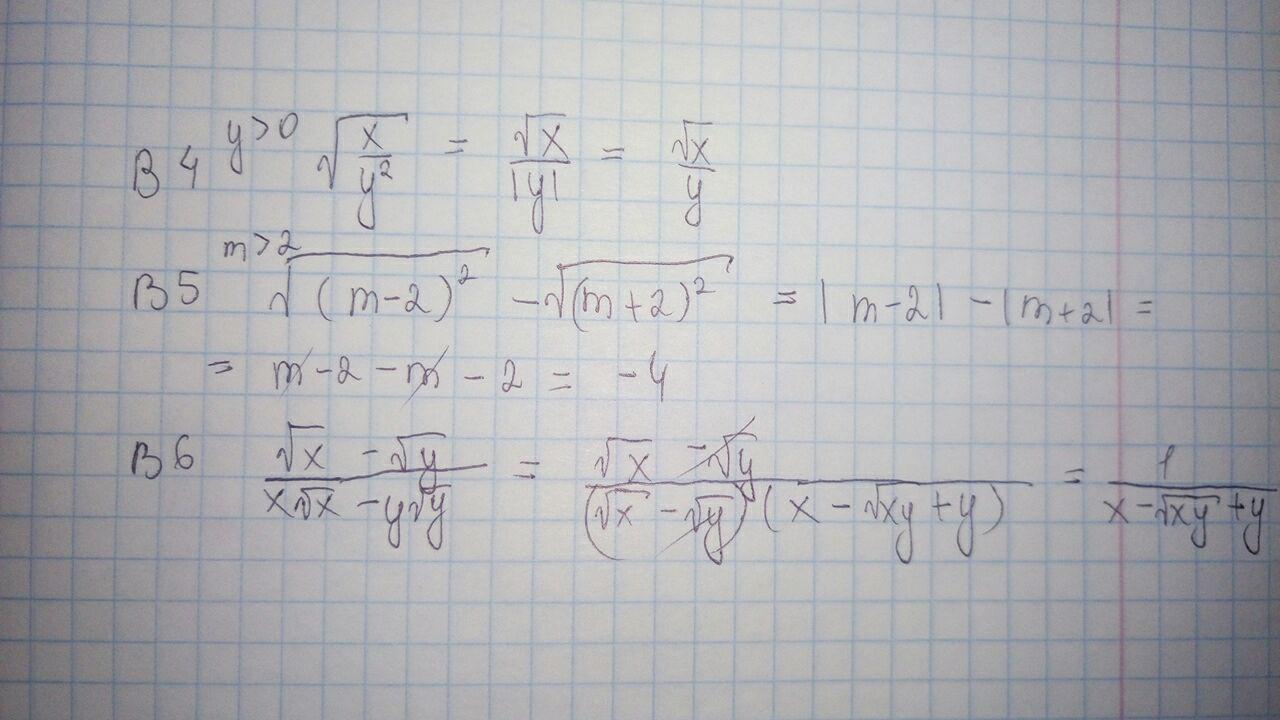 В 4 y>0 √(x/y²) = √x/|y| = √x/y
В 5 m>2 √(m-2)² - √(m+2)² = |m-2| - |m+2| =
= m - 2 - m - 2 = -4
В 6 (√x - √y)/(x√x - y√y) = (√x - √y)/((√x - √y)(x - √xy + y)) = 1/(x - √xy + y)